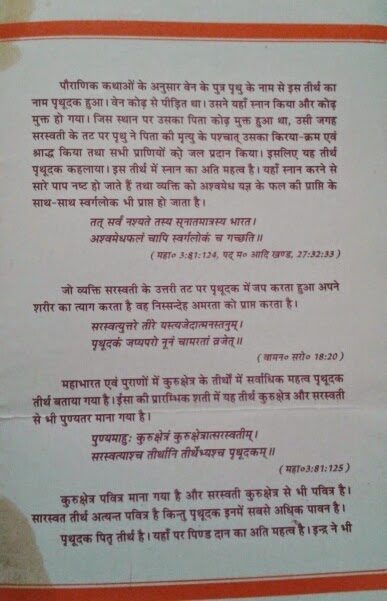 पौराणिक कथाओं के अनुसार वेन के पुत्र पृथु के नाम से इस तीर्थ का
नाम पृथूदक हुआ। वेन कोढ़ से पीड़ित था। उसने यहाँ स्नान किया और कोढ़
मुक्त हो गया। जिस स्थान पर उसका पिता कोढ़ मुक्त हुआ था, उसी जगह
सरस्वती के तट पर पृथु ने पिता की मृत्यु के पश्चात् उसका किरया-क्रम एवं
श्राद्ध किया तथा सभी प्राणियों को जल प्रदान किया। इसलिए यह तीर्थ
पृथूदक कहलाया। इस तीर्थ में स्नान का अति महत्व है। यहाँ स्नान करने से
सारे पाप नष्ट हो जाते हैं तथा व्यक्ति को अश्वमेध यज्ञ के फल की प्राप्ति के
साथ-साथ स्वर्गलोक भी प्राप्त हो जाता है।
तत् सर्वं नश्यते तस्य स्नातमात्रस्य भारत।
अश्वमेधफलं चापि स्वर्गलोकं च गच्छति॥
( महा० 3:81:124, पद् म० आदि खण्ड, 27:32:33 )
जो व्यक्ति सरस्वती के उत्तरी तट पर पृथूदक में जप करता हुआ अपने
शरीर का त्याग करता है वह निस्सन्देह अमरता को प्राप्त करता है।
सरस्वत्युत्तरे तीरे यस्त्यजेदात्मनस्तनुम्।
पृथूदकं जप्यपरो नूनं चामरतां व्रजेत्॥
( वामन० सरो० 18:20 )
महाभारत एवं पुराणों में कुरुक्षेत्र के तीर्थों में सर्वाधिक महत्व पृथूदक
तीर्थ बताया गया है। ईसा की प्रारम्भिक शती में यह तीर्थ कुरुक्षेत्र और सरस्वती
से भी पुण्यतर माना गया है।
पुण्यमाहुः कुरुक्षेत्रं कुरुक्षेत्रात्सरस्वतीम्।
सरस्वत्याश्च तीर्थानि तीर्थेभ्यश्च पृथूदकम्॥
(महा०3:81:125)
कुरुक्षेत्र पवित्र माना गया है और सरस्वती कुरुक्षेत्र से भी पवित्र है।
सारस्वत तीर्थ अत्यन्त पवित्र है किन्तु पृथूदक इनमें सबसे अधिक पावन है।
पृथूदक पितृ तीर्थ है। यहाँ पर पिण्ड दान का अति महत्व है। इन्द्र ने भी